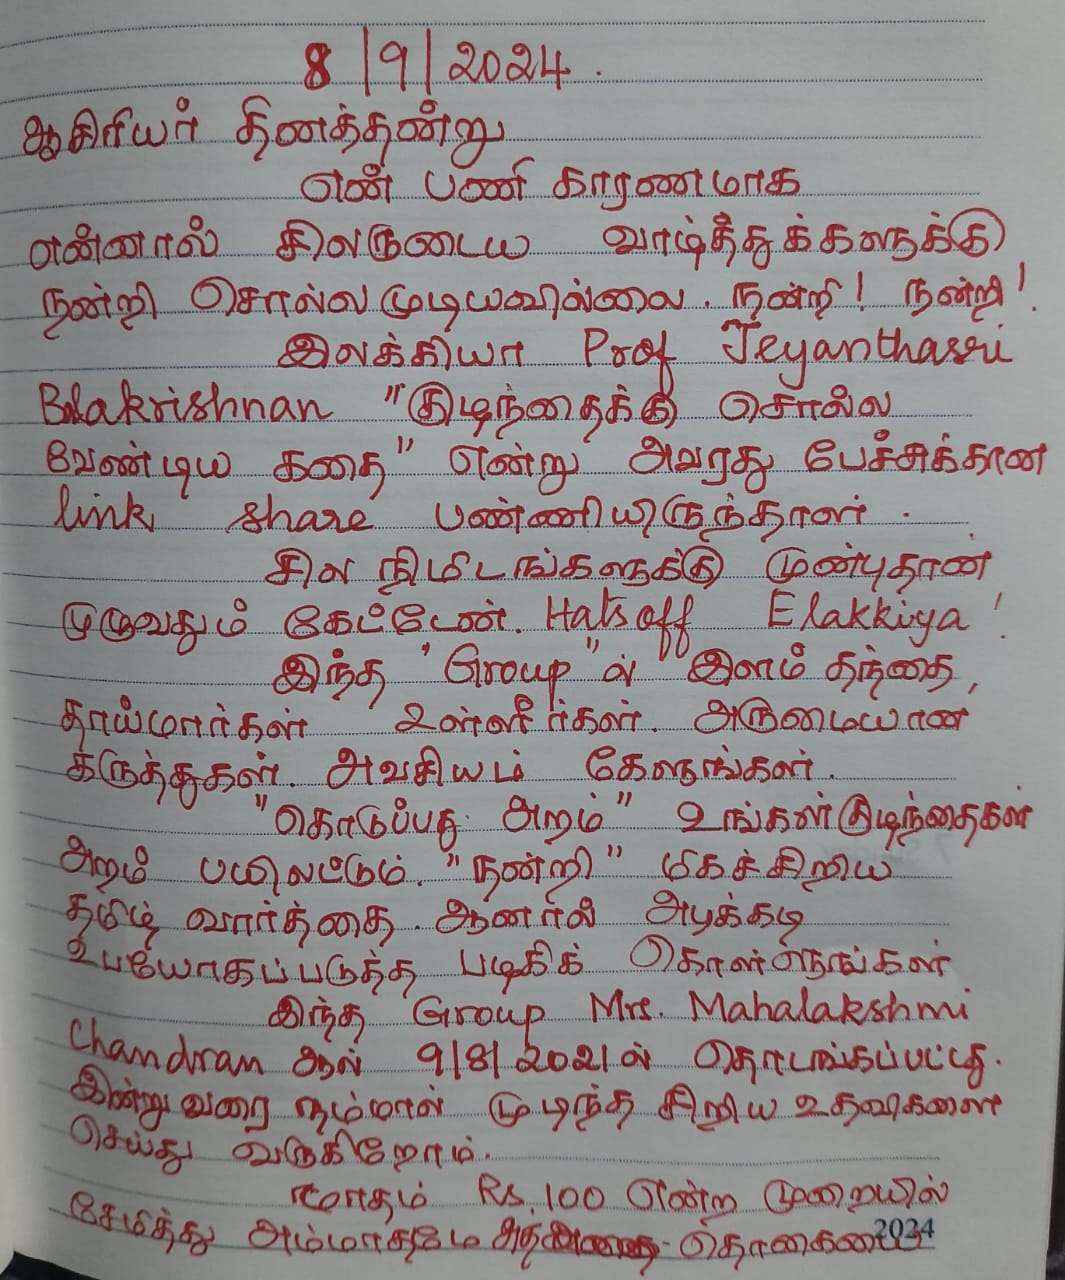 8/9/2024.
ஆசிரியர் தினத்தன்று
என் பணி காரணமாக
என்னால் சிலருடைய வாழ்த்துக்களுக்கு
நன்றி சொல்லமுடியவில்லை. நன்றி! நன்றி!
இலக்கியா Prof Jeyanthasri
Balakrishnan "குழந்தைக்கு சொல்ல
வேண்டிய கதை" என்று அவரது பேச்சுக்கான
link share பண்ணியிருந்தாள்.
சில நிமிடங்களுக்கு முன்புதான்
முழுவதும் கேட்டேன். Hats off Elakkiya!
இந்த "Group"ல் இளம் தந்தை,
தாய்மார்கள் உள்ளீர்கள். அருமையான
கருத்துகள். அவசியம் கேளுங்கள்.
"கொடுப்பது அறம்" உங்கள் குழந்தைகள்
அறம் பயிலட்டும். "நன்றி" மிகச்சிறிய
தமிழ் வார்த்தை. ஆனால் அடிக்கடி
உபயோகப்படுத்த பழகிக் கொள்ளுங்கள்
இந்த Group Mrs. Mahalakshmi
Chandran ஆல் 9/8/2021ல் தொடங்கப்பட்டது.
இன்றுவரை நம்மால் முடிந்த சிறிய உதவிகளை
செய்து வருகிறோம்.
மாதம் Rs 100 என்ற முறையில்
சேமித்து அம்மாதமே தொகையை
2024